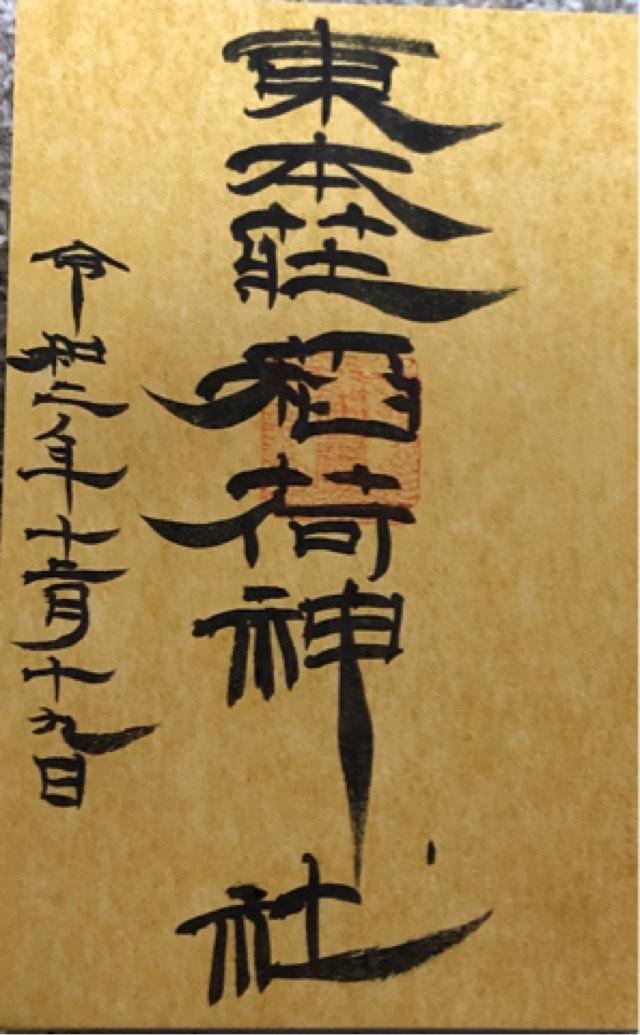 東本荘稲荷神社
令和二年十二月十九日